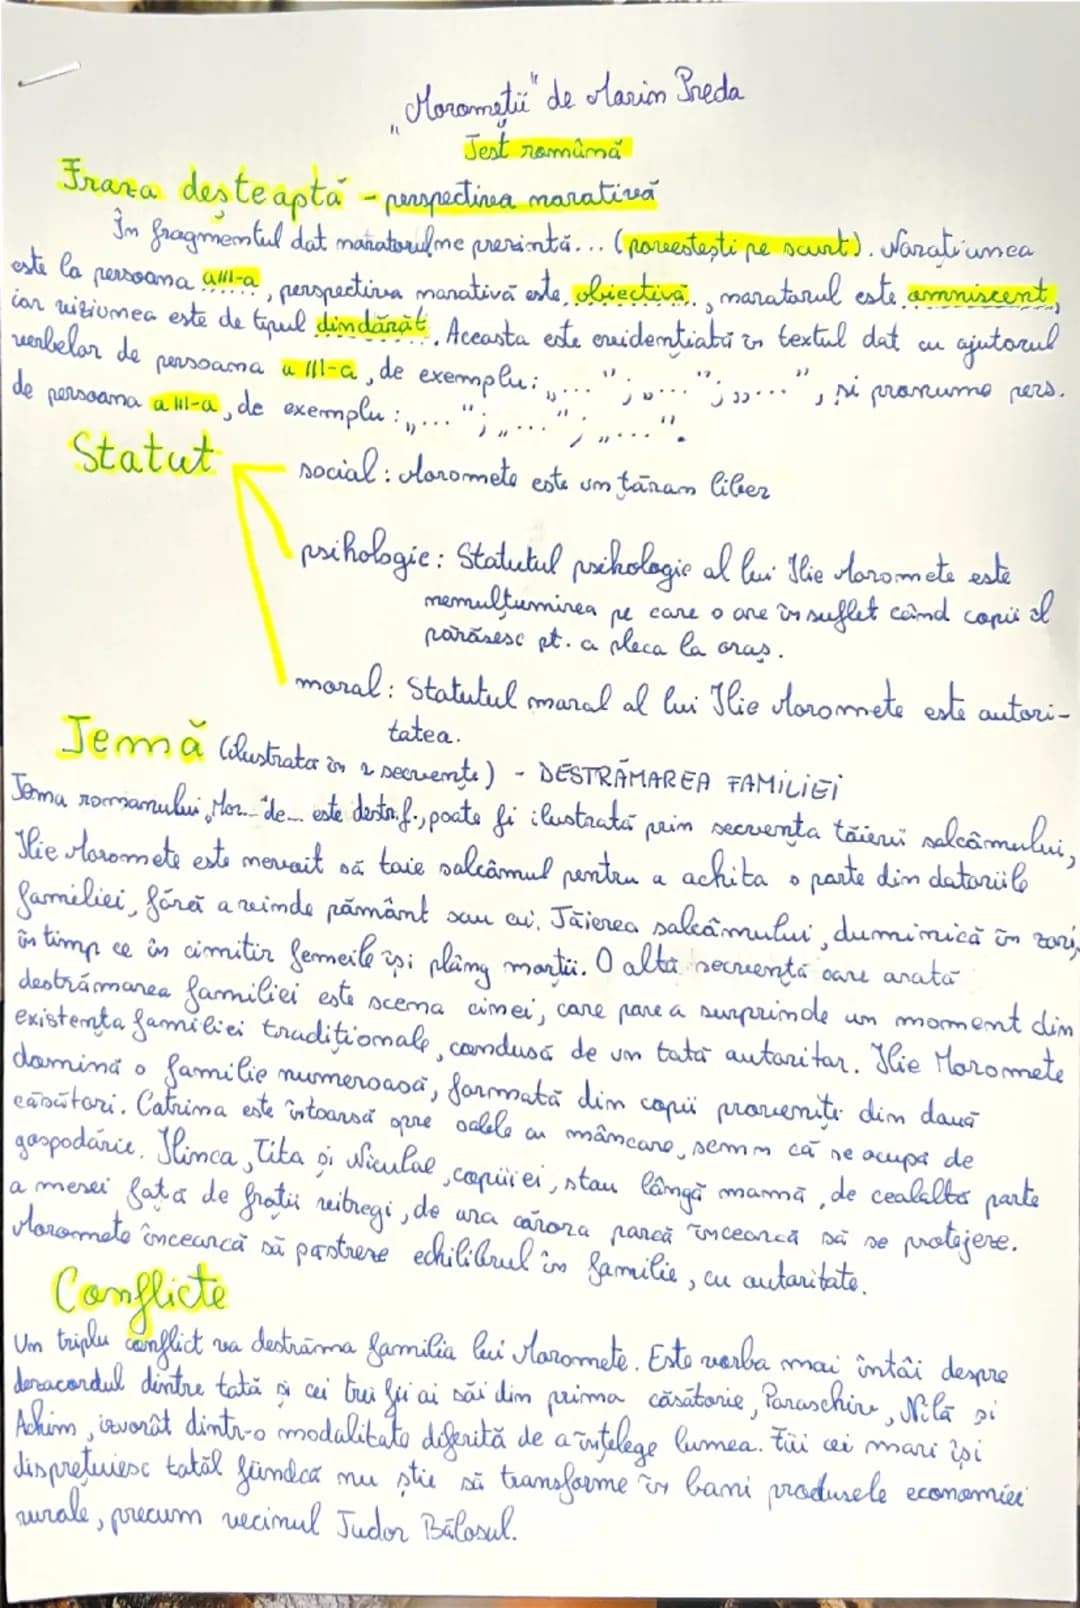 „Moromeții" de Marin Preda
Test română
Fraza deșteaptă - perspectiva narativă
În fragmentul dat naratorul ne prezintă... (povestești pe scurt). Narațiunea
este la persoana a III-a, perspectiva narativă este obiectivă, naratorul este omniscent,
iar viziunea este de tipul dindărăt. Aceasta este evidențiată în textul dat cu ajutorul
verbelor de persoana a III-a, de exemplu: „..."; „..."; „...", și pronume pers.
de persoana a III-a, de exemplu: „..."; „..."; „...".
Statut
social: Moromete este un țăran liber
psihologic: Statutul psihologic al lui Ilie Moromete este
nemulțumirea pe care o are în suflet când copii îl
părăsesc pt. a pleca la oraș.
moral: Statutul moral al lui Ilie Moromete este autori-
tatea.
Temă (ilustrata în 2 secvențe) - DESTRĂMAREA FAMILIEI
Tema romanului „Mor..." de... este destr. f., poate fi ilustrată prin secvența tăierii salcâmului,
Ilie Moromete este nevoit să taie salcâmul pentru a achita o parte din datoriile
familiei, fără a vinde pământ sau oi. Tăierea salcâmului, duminică în zori,
în timp ce în cimitir femeile își plâng morții. O altă secvență care arată
destrămarea familiei este scena cinei, care pare a surprinde un moment din
existența familiei tradiționale, condusă de un tată autoritar. Ilie Moromete
domină o familie numeroasă, formată din copii proveniți din două
căsători. Catrina este întoarsă spre oalele cu mâncare, semn că se ocupă de
gospodărie. Ilinca, Tita și Niculae, copiii ei, stau lângă mamă, de cealaltă parte
a mesei față de frații vitregi, de ura cărora parcă încearcă să se protejeze.
Moromete încearcă să păstreze echilibrul în familie, cu autoritate.
Conflicte
Un triplu conflict va destrăma familia lui Moromete. Este vorba mai întâi despre
dezacordul dintre tată și cei trei fii ai săi din prima căsătorie, Paraschiv, Nilă și
Achim, izvorât dintr-o modalitate diferită de a înțelege lumea. Fii cei mari își
disprețuiesc tatăl fiindcă nu știe să transforme în bani produsele economiei
rurale, precum vecinul Tudor Bălosul.